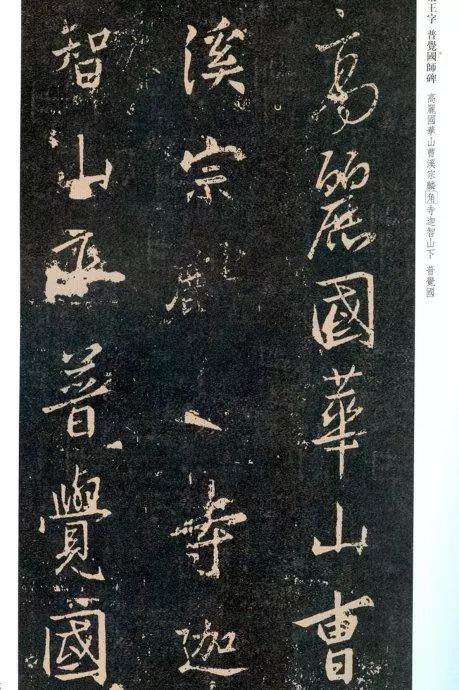 高麗國華山曹
溪宗麟寺迦
智山下普覺國
王字 普覺國師碑 高麗國華山曹溪宗麟[角]寺迦智山下 普覺國